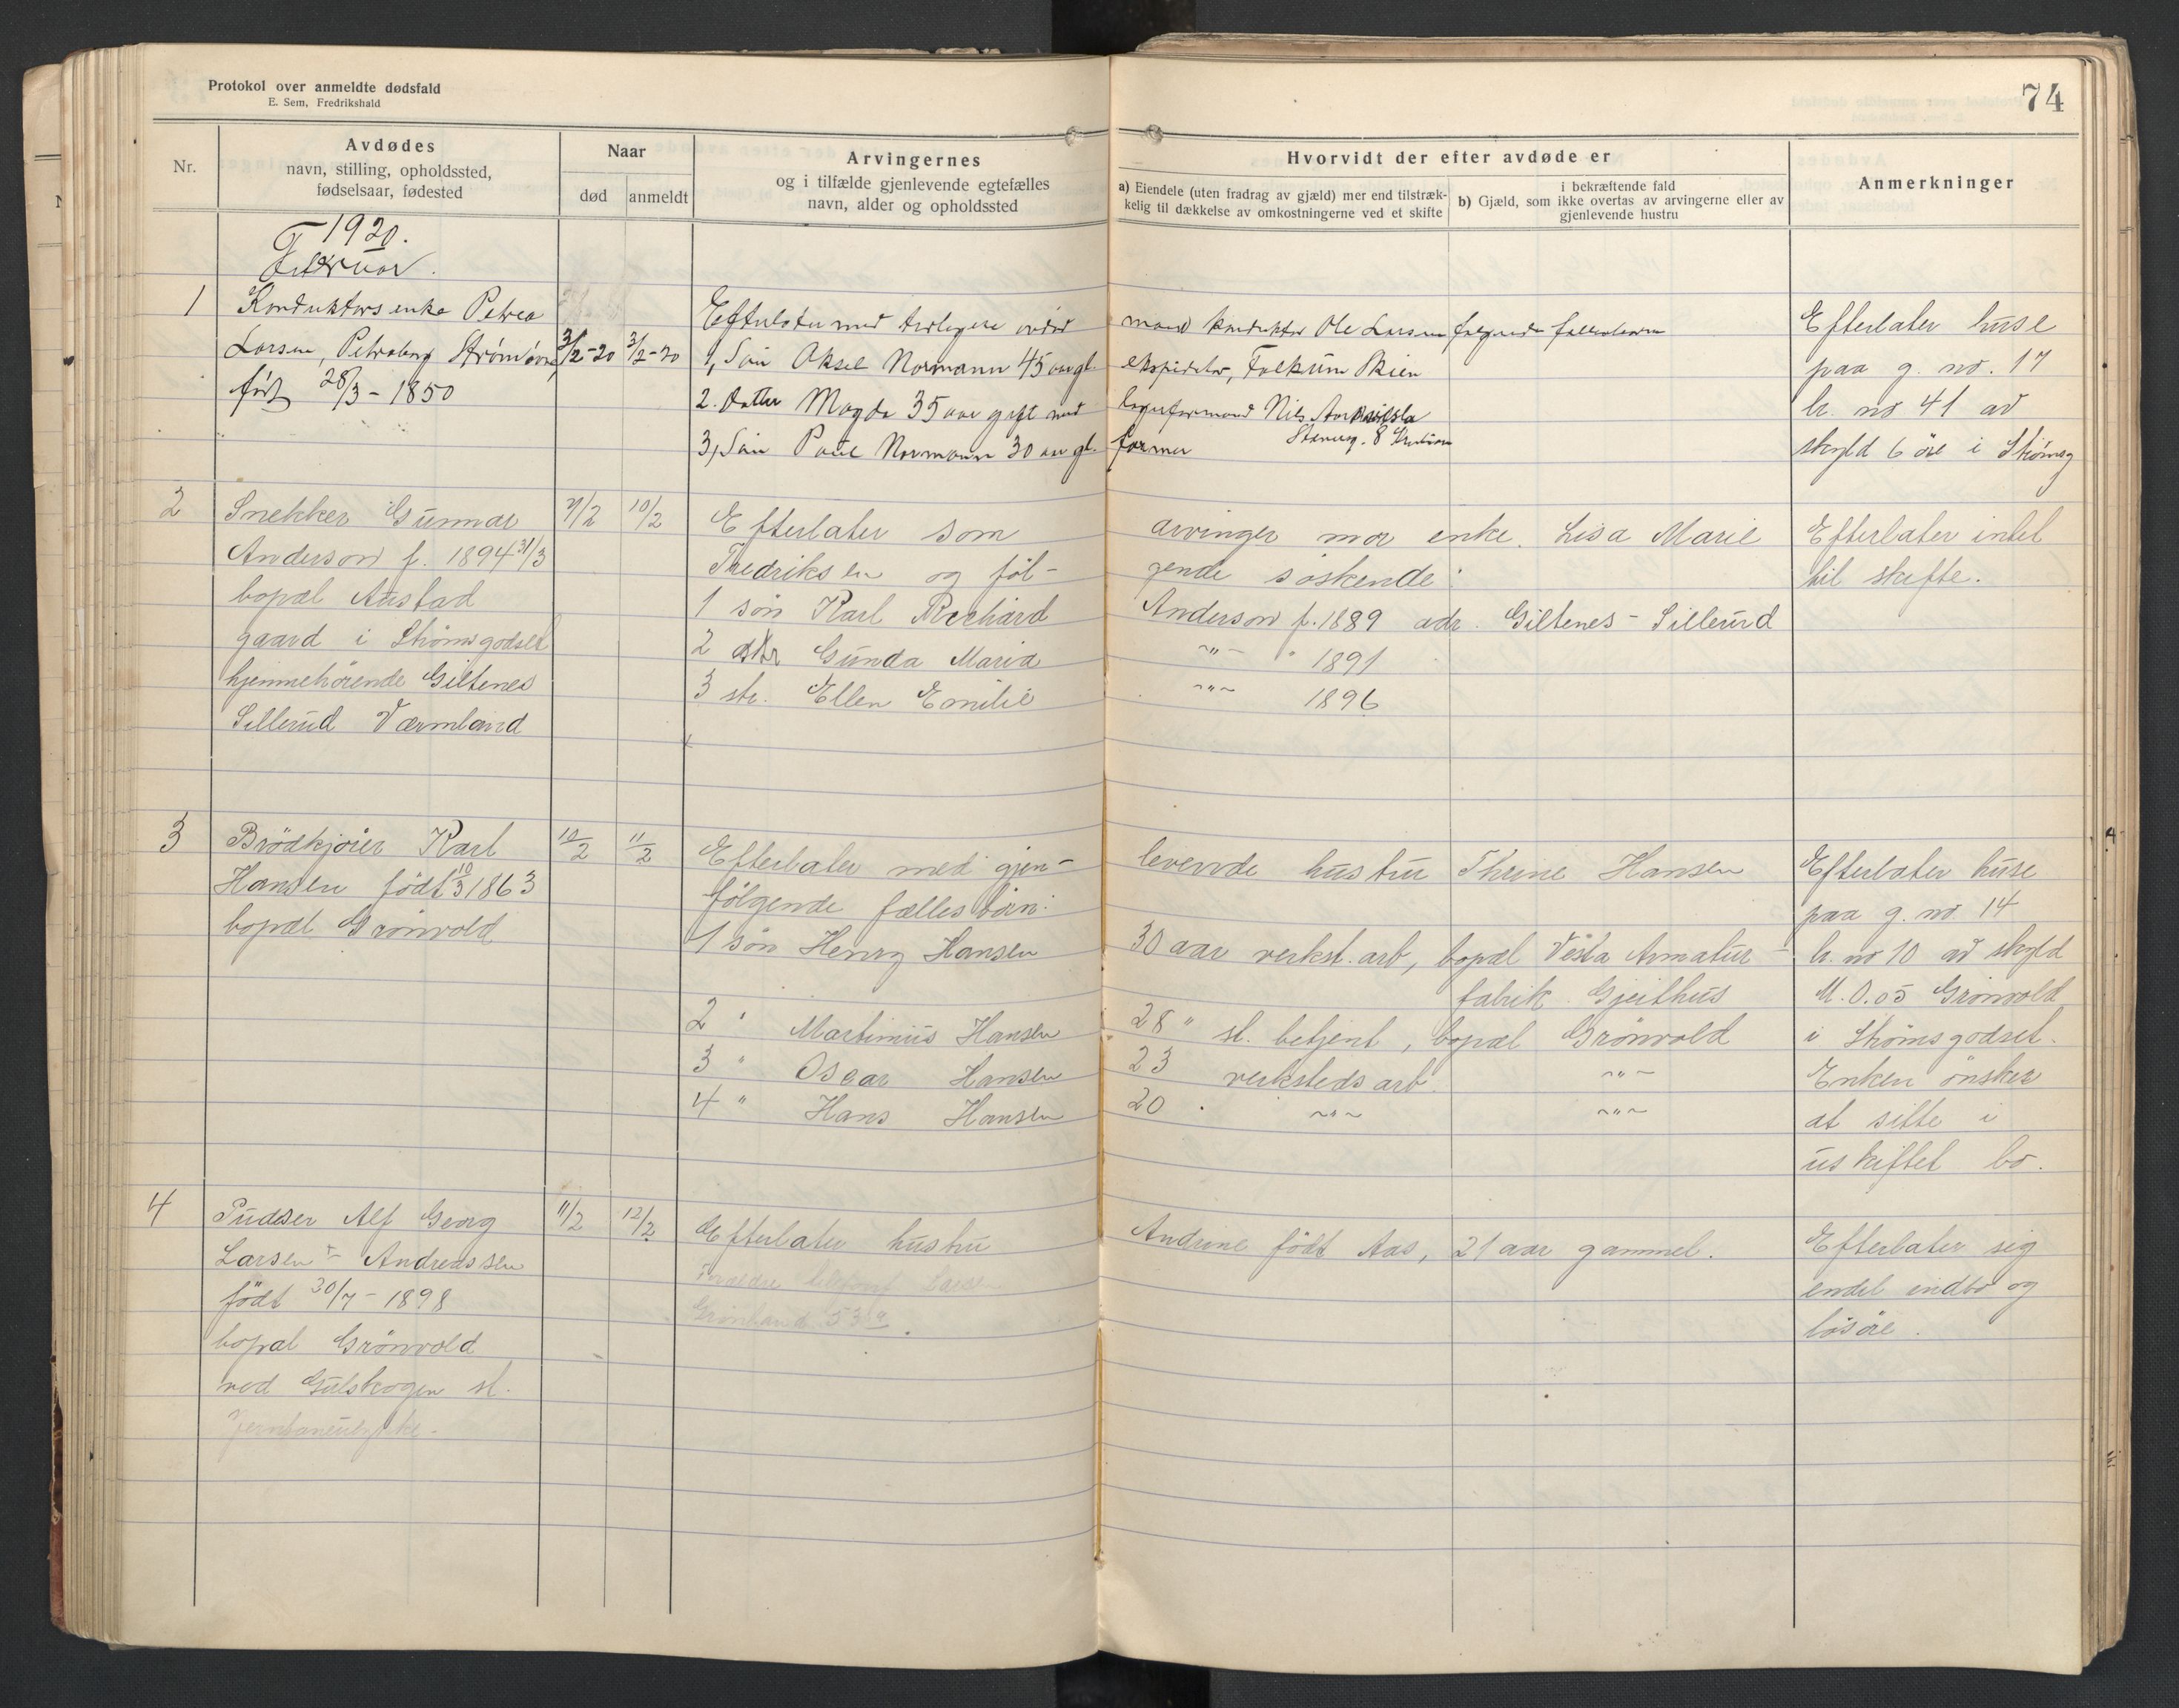 Protokol over anmeldte dødsfald
E. Sem, Fredrikshald
74
Nr.
Avdødes
navn, stilling, opholdssted,
fødselsaar, fødested
Naar
død
anmeldt
Arvingernes
og i tilfælde gjenlevende egtefælles
navn, alder og opholdssted
Hvorvidt der efter avdøde er
a) Eiendele (uten fradrag av gjæld) mer end tilstræk-
kelig til dækkelse av omkostningerne ved et skifte
i bekræftende fald
b) Gjæld, som ikke overtas av arvingerne eller av
gjenlevende hustru
Anmerkninger
1920.
Februar.
1
Konduktørsenke Petrea
Larsen, Petraberg Strømsøen,
født 28/3 - 1850
3/2-20
3/2-20
Efterlater med tidligere avdød mand konduktør Ole Larsen følgende fællesbørn
1, Søn Aksel Normann 45 aar gl. ekspeditør, Falkum Skien
2. Datter Magda 35 aar gift med lagerformand Nils
3, Søn Paul Normann 30 aar gl. former
Efterlater huse
paa g. no. 17
br. no 41 av
skyld 6 öre i Strømsg
2
Snekker Gunnar
Anderson f. 1894 31/3
bopæl Austad
gaard i Strømsgodset
hjemmehørende Giltenes
Sillerud Værmland
9/2
10/2
Efterlater som arvinger mor enke. Lisa Marie
Fredriksen og føl- gende söskende:
1 sön Karl Richard Anderson f. 1889 adr. Giltenes - Sillerud
2 dtr Gunda Maria -"- " 1891
3 str. Ellen Emilie -"- 1896
Efterlater intet
til skifte.
3
Brödkjører Karl
Hansen født 10/3 1863
bopæl Grönvold
10/2
11/2
Efterlater med gjen- levende hustru Thrine Hansen
følgende fælles börn:
1 sön Henry Hansen 30 aar verkst. arb, bopæl Vesta Armatur-
fabrik Gjeithus
2 " Martinius Hansen 28 " st. betjent, bopæl Grönvold
3 " Oscar Hansen 23 verksteds arb. -"-
4 " Hans Hansen 20 . -"- -"-
Efterlater huse
paa g. no 14
br. no 10 av skyld
M. 0.05 Grönvold
i Strömsgodset.
Enken önsker
at sitte i
uskiftet bo.
4
Pudser Alf Georg
Larsen - Andreassen
födt 30/7 - 1898
bopæl Grönvold
ved Gulskogen st.
Jernbaneulykke.
11/2
12/2
Efterlater hustru Andrine födt Aas, 21 aar gammel.
Forældre Larsen
Grönland 53 a.
Efterlater sig
endel indbo og
lösöre.